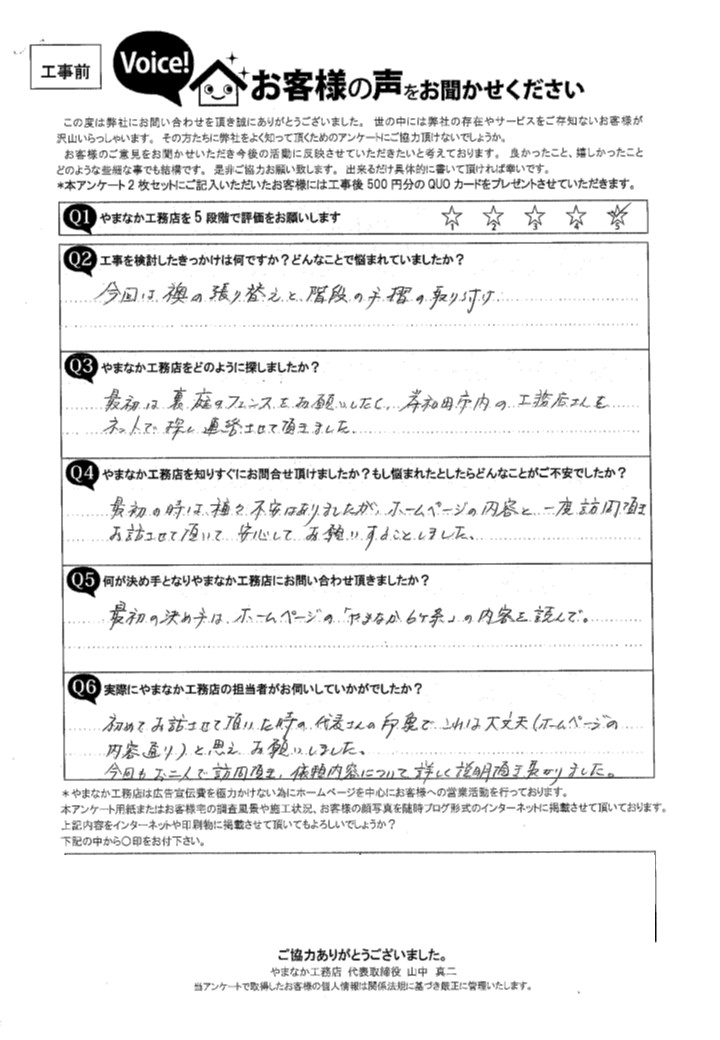 工事前
Voice!
お客様の声をお聞かせください
この度は弊社にお問い合わせを頂き誠にありがとうございました。 世の中には弊社の存在やサービスをご存知ないお客様が
沢山いらっしゃいます。 その方たちに弊社をよく知って頂くためのアンケートにご協力頂けないでしょうか。
お客様のご意見をお聞かせいただき今後の活動に反映させていただきたいと考えております。 良かったこと、嬉しかったこと
どのような些細な事でも結構です。 是非ご協力お願い致します。 出来るだけ具体的に書いて頂ければ幸いです。
*本アンケート2枚セットにご記入いただいたお客様には工事後500円分のQUOカードをプレゼントさせていただきます。
Q1 やまなか工務店を5段階で評価をお願いします ☆1 ☆2 ☆3 ☆4 ☆5
Q2 工事を検討したきっかけは何ですか？どんなことで悩まれていましたか？
今回は襖の張り替えと、階段の手摺の取り付け
Q3 やまなか工務店をどのように探しましたか？
最初は裏庭のフェンスをお願いしたく、岸和田市内の工務店さんを
ネットで探し連絡させて頂きました。
Q4 やまなか工務店を知りすぐにお問合せ頂けましたか？もし悩まれたとしたらどんなことがご不安でしたか？
最初の時は、種々不安はありましたが、ホームページの内容と、一度訪問頂き
お話させて頂いて安心してお願いすることしました。
Q5 何が決め手となりやまなか工務店にお問い合わせ頂きましたか？
最初の決め手は、ホームページの「やまなか6ケ条」の内容を読んで。
Q6 実際にやまなか工務店の担当者がお伺いしていかがでしたか？
初めてお話させて頂いた時の代表さんの印象で、これは大丈夫(ホームページの
内容通り)と思えお願いしました。
今回もお二人で訪問頂き、依頼内容について詳しく説明頂き良かりました。
*やまなか工務店は広告宣伝費を極力かけない為にホームページを中心にお客様への営業活動を行っております。
本アンケート用紙またはお客様宅の調査風景や施工状況、お客様の顔写真を随時ブログ形式のインターネットに掲載させて頂いております。
上記内容をインターネットや印刷物に掲載させて頂いてもよろしいでしょうか？
下記の中から〇印をお付下さい。
ご協力ありがとうございました。
やまなか工務店 代表取締役 山中 真二
当アンケートで取得したお客様の個人情報は関係法規に基づき厳正に管理いたします。